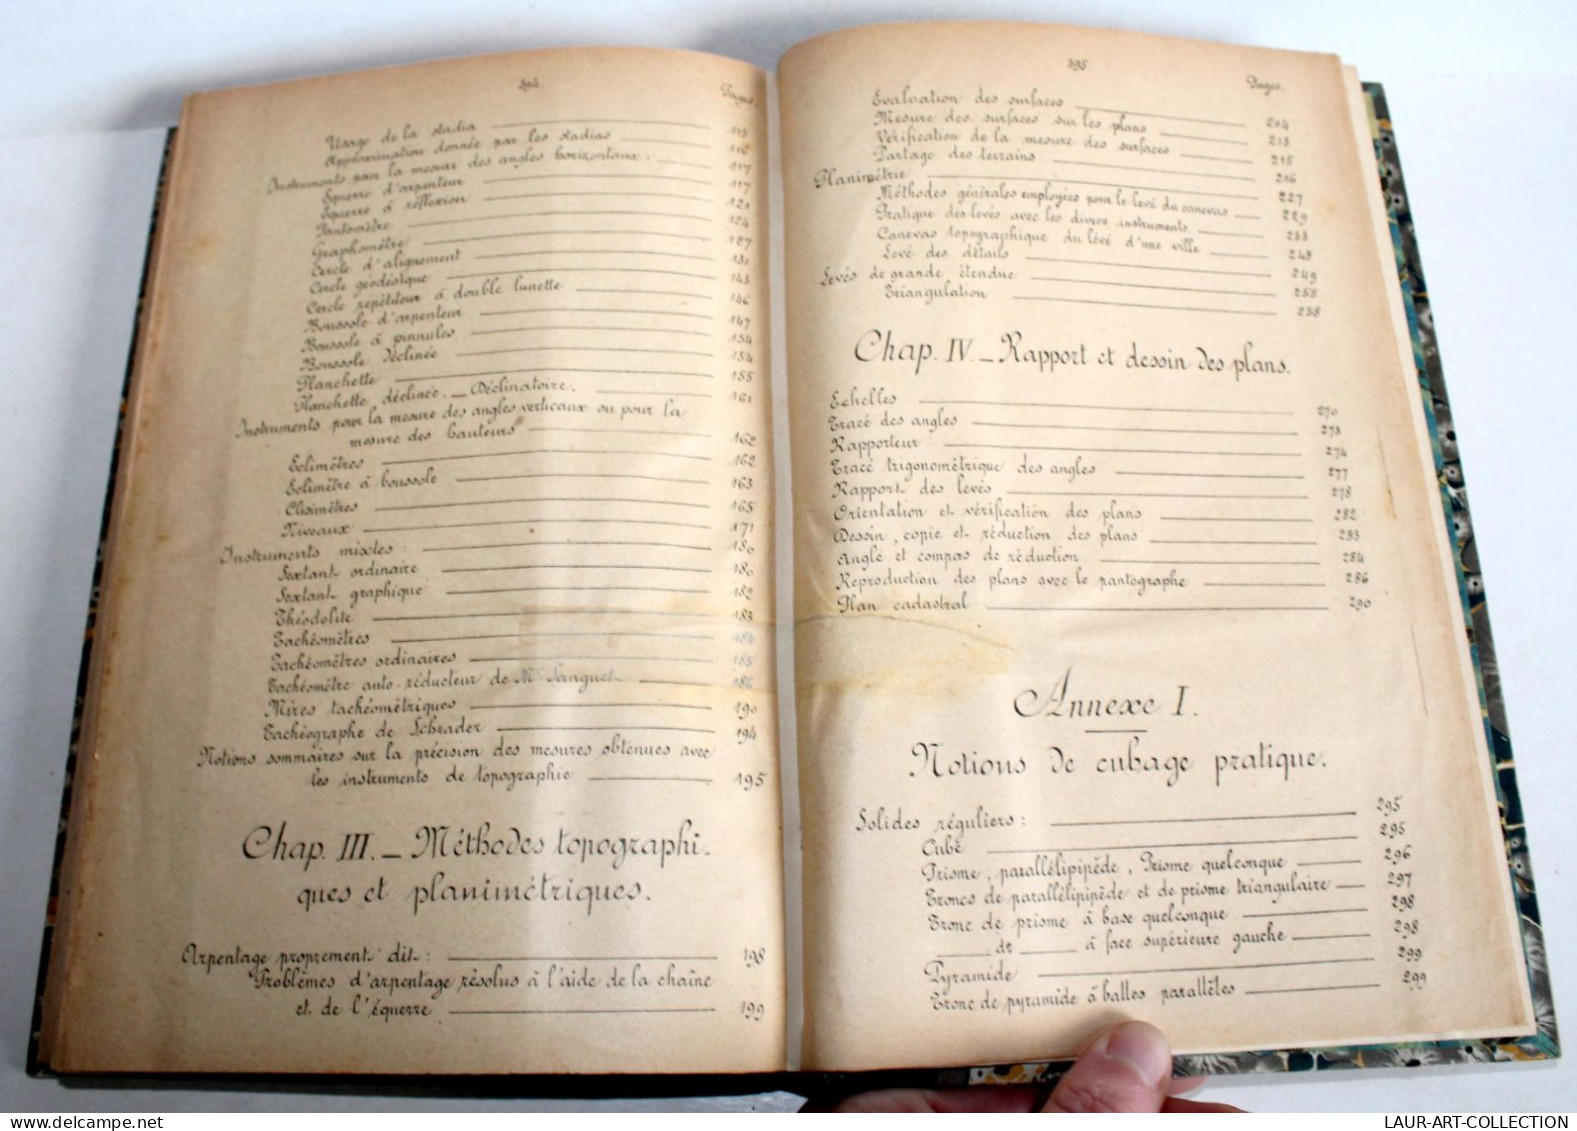 394.
Pages.
Usage de la stadia 115
Approximation donnée par les stadias 116
Instruments pour la mesure des angles horizontaux : 117
Equerre d'arpenteur 117
Equerre à réflexion 121
Pantomètre 124
Graphomètre 127
Cercle d'alignement 131
Cercle géodésique 143
Cercle répétiteur à double lunette 146
Boussole d'arpenteur 147
Boussole à pinnules 154
Boussole déclinée 154
Planchette 155
Planchette déclinée. — Déclinatoire. 161
Instruments pour la mesure des angles verticaux ou pour la
mesure des hauteurs 162
Eclimètres 162
Eclimètre à boussole 163
Clisimètres 165
Niveaux 171
Instruments mixtes : 180
Sextant ordinaire 180
Sextant graphique 182
Théodolite 183
Tachéomètres 184
Tachéomètres ordinaires 185
Tachéomètre auto-réducteur de Mr Sanguet 186
Mires tachéométriques 190
Tachéographe de Schrader 194
Notions sommaires sur la précision des mesures obtenues avec
les instruments de topographie 195
Chap. III. — Méthodes topographi-
ques et planimétriques.
Arpentage proprement dit : 198
Problèmes d'arpentage résolus à l'aide de la chaîne
et de l'équerre 199
395.
Pages.
Evaluation des surfaces 204
Mesure des surfaces sur les plans 213
Vérification de la mesure des surfaces 215
Partage des terrains 216
Planimétrie 227
Méthodes générales employées pour le levé du canevas 229
Pratique des levés avec les divers instruments. 233
Canevas topographique du levé d'une ville 243
Levé des détails 249
Levés de grande étendue 255
Triangulation 258
Chap. IV. — Rapport et dessin des plans.
Echelles 270
Tracé des angles 273
Rapporteur 274
Tracé trigonométrique des angles 277
Rapport des levés 278
Orientation et vérification des plans 282
Dessin, copie et réduction des plans 283
Angle et compas de réduction 284
Reproduction des plans avec le pantographe 286
Plan cadastral 290
Annexe I.
Notions de cubage pratique.
Solides réguliers : 295
Cube 295
Prisme, parallélipipède, Prisme quelconque 296
Troncs de parallélipipède et de prisme triangulaire 297
Tronc de prisme à base quelconque 298
— do — à face supérieure gauche 298
Pyramide 299
Tronc de pyramide à battes parallètes 299
LAUR-ART-COLLECTION